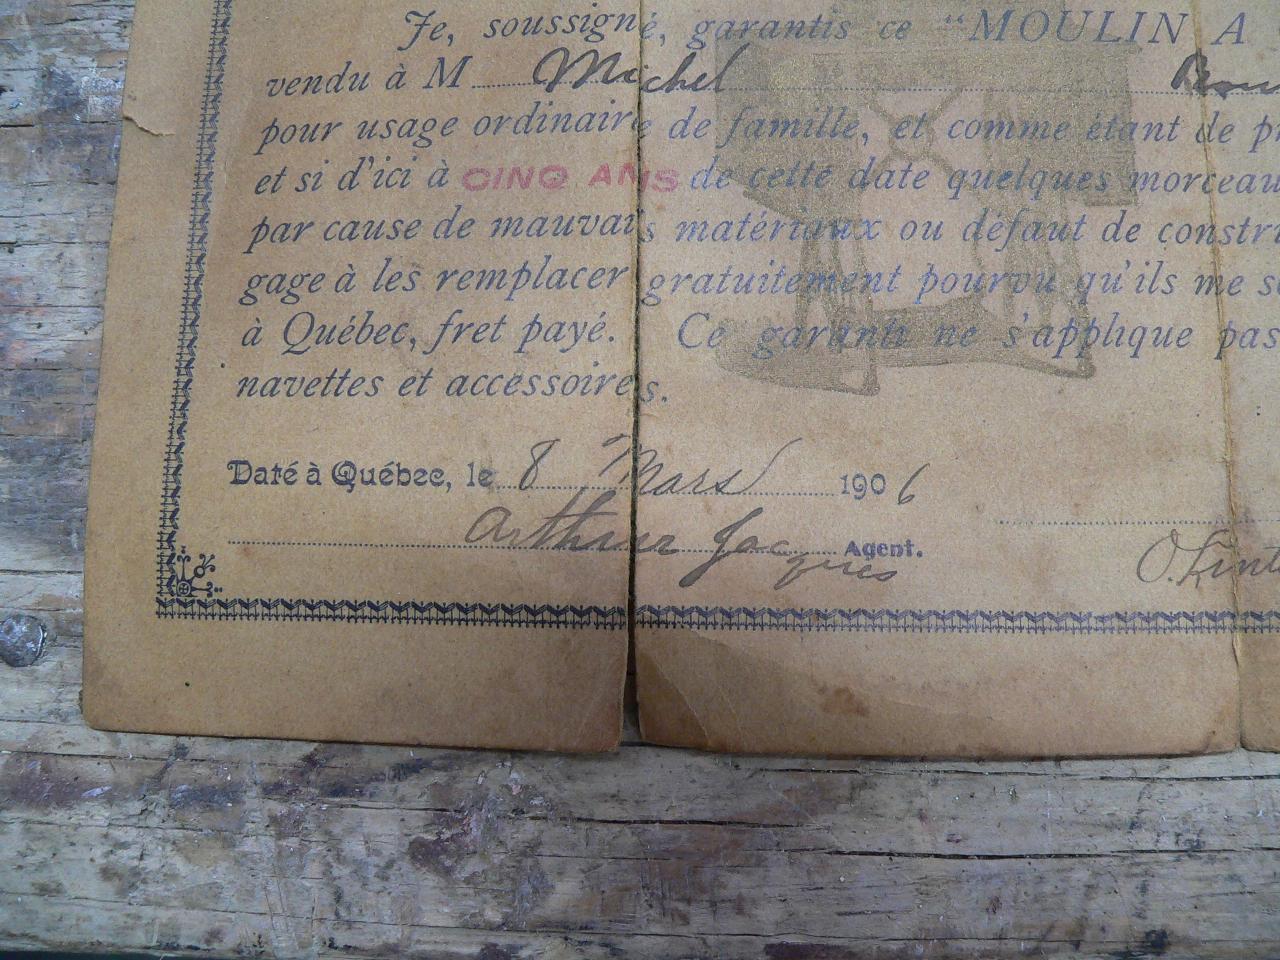 Je, soussigné, garantis ce "MOULIN A
vendu à M Michel
pour usage ordinaire de famille, et comme étant de
et si d'ici à CINQ ANS de cette date quelques morceau
par cause de mauvais matériaux ou défaut de constru
gage à les remplacer gratuitement pourvu qu'ils me
à Québec, fret payé. Ce garanti ne s'applique pas
navettes et accessoires.
Daté à Québec, le 8 Mars 1906
Arthur Jacques Agent.
O.